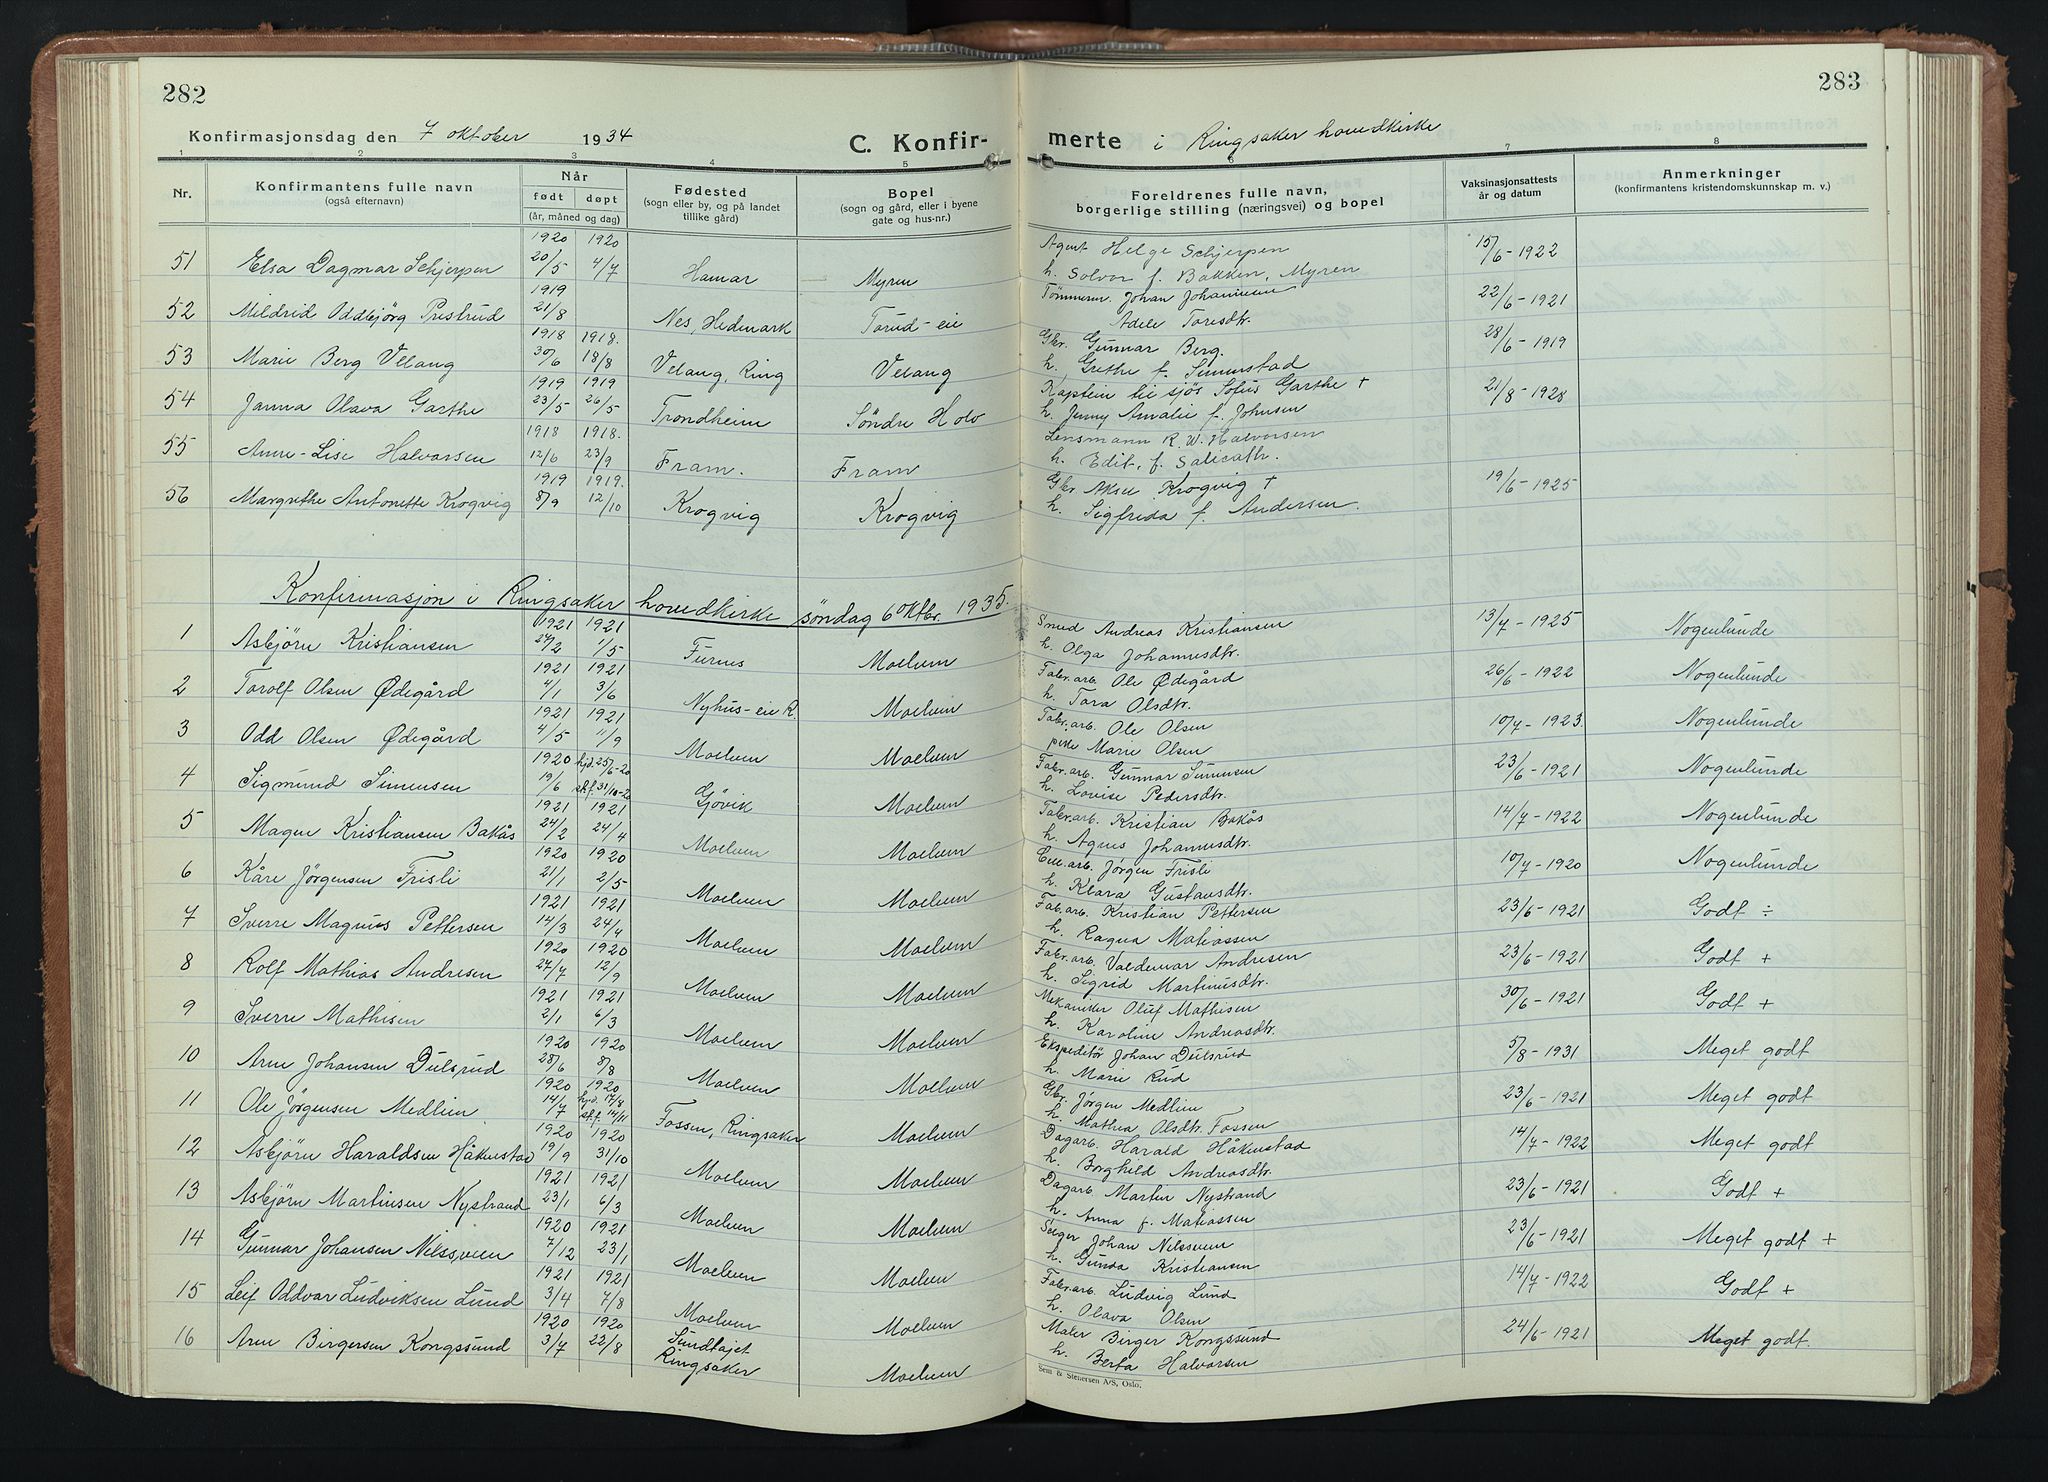 282
Konfirmasjonsdag den 7 oktober 1934
C. Konfir-
1 2 3 4 5
Nr.
Konfirmantens fulle navn
(også efternavn)
Når
født døpt
(år, måned og dag)
Fødested
(sogn eller by, og på landet
tillike gård)
Bopel
(sogn og gård, eller i byene
gate og hus-nr.)
1920 1920
51 Elsa Dagmar Schjerpen 20/5 4/7 Hamar Myren
1919
52 Mildrid Oddbjörg Prestrud 21/8 Nes, Hedmark Torud-eie
1918 1918.
53 Marie Berg Velang 30/6 18/8 Velang, Ring Velang
1919 1919
54 Janna Olava Garthe 23/5 26/5 Trondheim Søndre Holo
1918 1918.
55 Anne-Lise Halvorsen 12/6 23/9 Fram. Fram
1919 1919.
56 Margrethe Antonette Krogvig 8/9 12/10 Krogvig Krogvig
Konfirmasjon i Ringsaker hovedkirke søndag 6 oktbr. 1935.
1921 1921
1 Asbjörn Kristiansen 27/2 1/5 Furnes Moelven
1921 1921
2 Torolf Olsen Ødegård 4/1 3/6 Nyhus-eie R. Moelven
1921 1921
3 Odd Olsen Ødegård 4/5 11/9 Moelven Moelven
1920 hjd. 25/6-20
4 Sigmund Simensen 19/6 st.f. 31/10-20 Gjövik Moelven
1921 1921
5 Magne Kristiansen Bakås 24/2 24/4 Moelven Moelven
1920 1920
6 Kåre Jörgensen Frisli 21/1 2/5 Moelven Moelven
1921 1921
7 Sverre Magnus Pettersen 14/3 24/4 Moelven Moelven
1920 1920
8 Rolf Mathias Andresen 27/7 12/9 Moelven Moelven
1921 1921
9 Sverre Mathisen 2/1 6/3 Moelven Moelven
1920 1920
10 Arne Johansen Dulsrud 28/6 8/8 Moelven Moelven
1920 1920
11 Ole Jörgensen Medlien 14/7 hjd. 17/8 st.f. 14/11 Fossen, Ringsaker Moelven
1920 1920
12 Asbjörn Haraldsen Håkenstad 19/9 31/10 Moelven Moelven
1921 1921
13 Asbjörn Martinsen Nystrand 23/1 6/3 Moelven Moelven
1920 1921
14 Gunnar Johansen Nilssveen 7/12 23/1 Moelven Moelven
1921 1921
15 Leif Oddvar Ludviksen Lund 3/4 7/8 Moelven Moelven
1920 1920
16 Arne Birgersen Kongssund 3/7 22/8 Sundhøjet Ringsaker Moelven
283
merte i Ringsaker hovedkirke
6 7 8
Foreldrenes fulle navn,
borgerlige stilling (næringsvei) og bopel
Vaksinasjonsattests
år og datum
Anmerkninger
(konfirmantens kristendomskunnskap m. v.)
Agent Helge Schjerpen 15/6-1922
h. Solvor f. Bakken, Myren
Tömmerm. Johan Johannesen 22/6-1921
Adele Toresdtr.
Gbr. Gunnar Berg. 28/6-1919
h. Grethe f. Simenstad
Kaptein til sjös Sofus Garthe + 21/8-1928
h. Jenny Amalie f. Johnsen
Lensmann R. W. Halvorsen
h. Edit, f. Salicath.
Gbr. Aksel Krogvig + 19/6-1925
h. Sigfrida f. Andersen.
Smed Andreas Kristiansen 13/7-1925 Nogenlunde
h. Olga Johannesdtr.
Fabr.arb. Ole Ødegård 26/6-1922 Nogenlunde
h. Tora Olsdtr.
Fabr.arb. Ole Olsen 10/7-1923. Nogenlunde
pike Marie Olsen
Fabr.arb. Gunnar Simensen 23/6-1921 Nogenlunde
h. Lovise Pedersdtr.
Fabr.arb. Kristian Bakås 14/7-1922 Nogenlunde
h. Agnes Johannesdtr.
arb. Jørgen Frisli 10/7-1920 Nogenlunde
h. Klara Gustavsdtr.
Fab.arb. Kristian Pettersen 23/6-1921 Godt ÷
h. Ragna Matiassen
Fabr.arb. Valdemar Andresen 23/6-1921 Godt +
h. Sigrid Martinusdtr.
Mekaniker Oluf Mathisen 30/6-1921 Godt +
h. Karoline Andreasdtr.
Ekspeditör Johan Dulsrud 5/8-1931 Meget godt
h. Marie Rud
Gbr. Jörgen Medlien 23/6-1921 Meget godt
h. Mathea Olsdtr. Fossen
Dagarb. Harald Håkenstad 14/7-1922 Meget godt
h. Borghild Andreasdtr.
Dagarb. Martin Nystrand 23/6-1921 Godt +
h. Anna f. Matiassen
Seiger Johan Nilssveen 23/6-1921 Meget godt +
h. Gunda Kristiansen
Fabr.arb. Ludvig Lund 14/7-1922 Godt +
h. Olava Olsen
Maler Birger Kongssund 24/6-1921 Meget godt.
h. Berta Halvorsen
Sem & Stenersen A/S, Oslo.